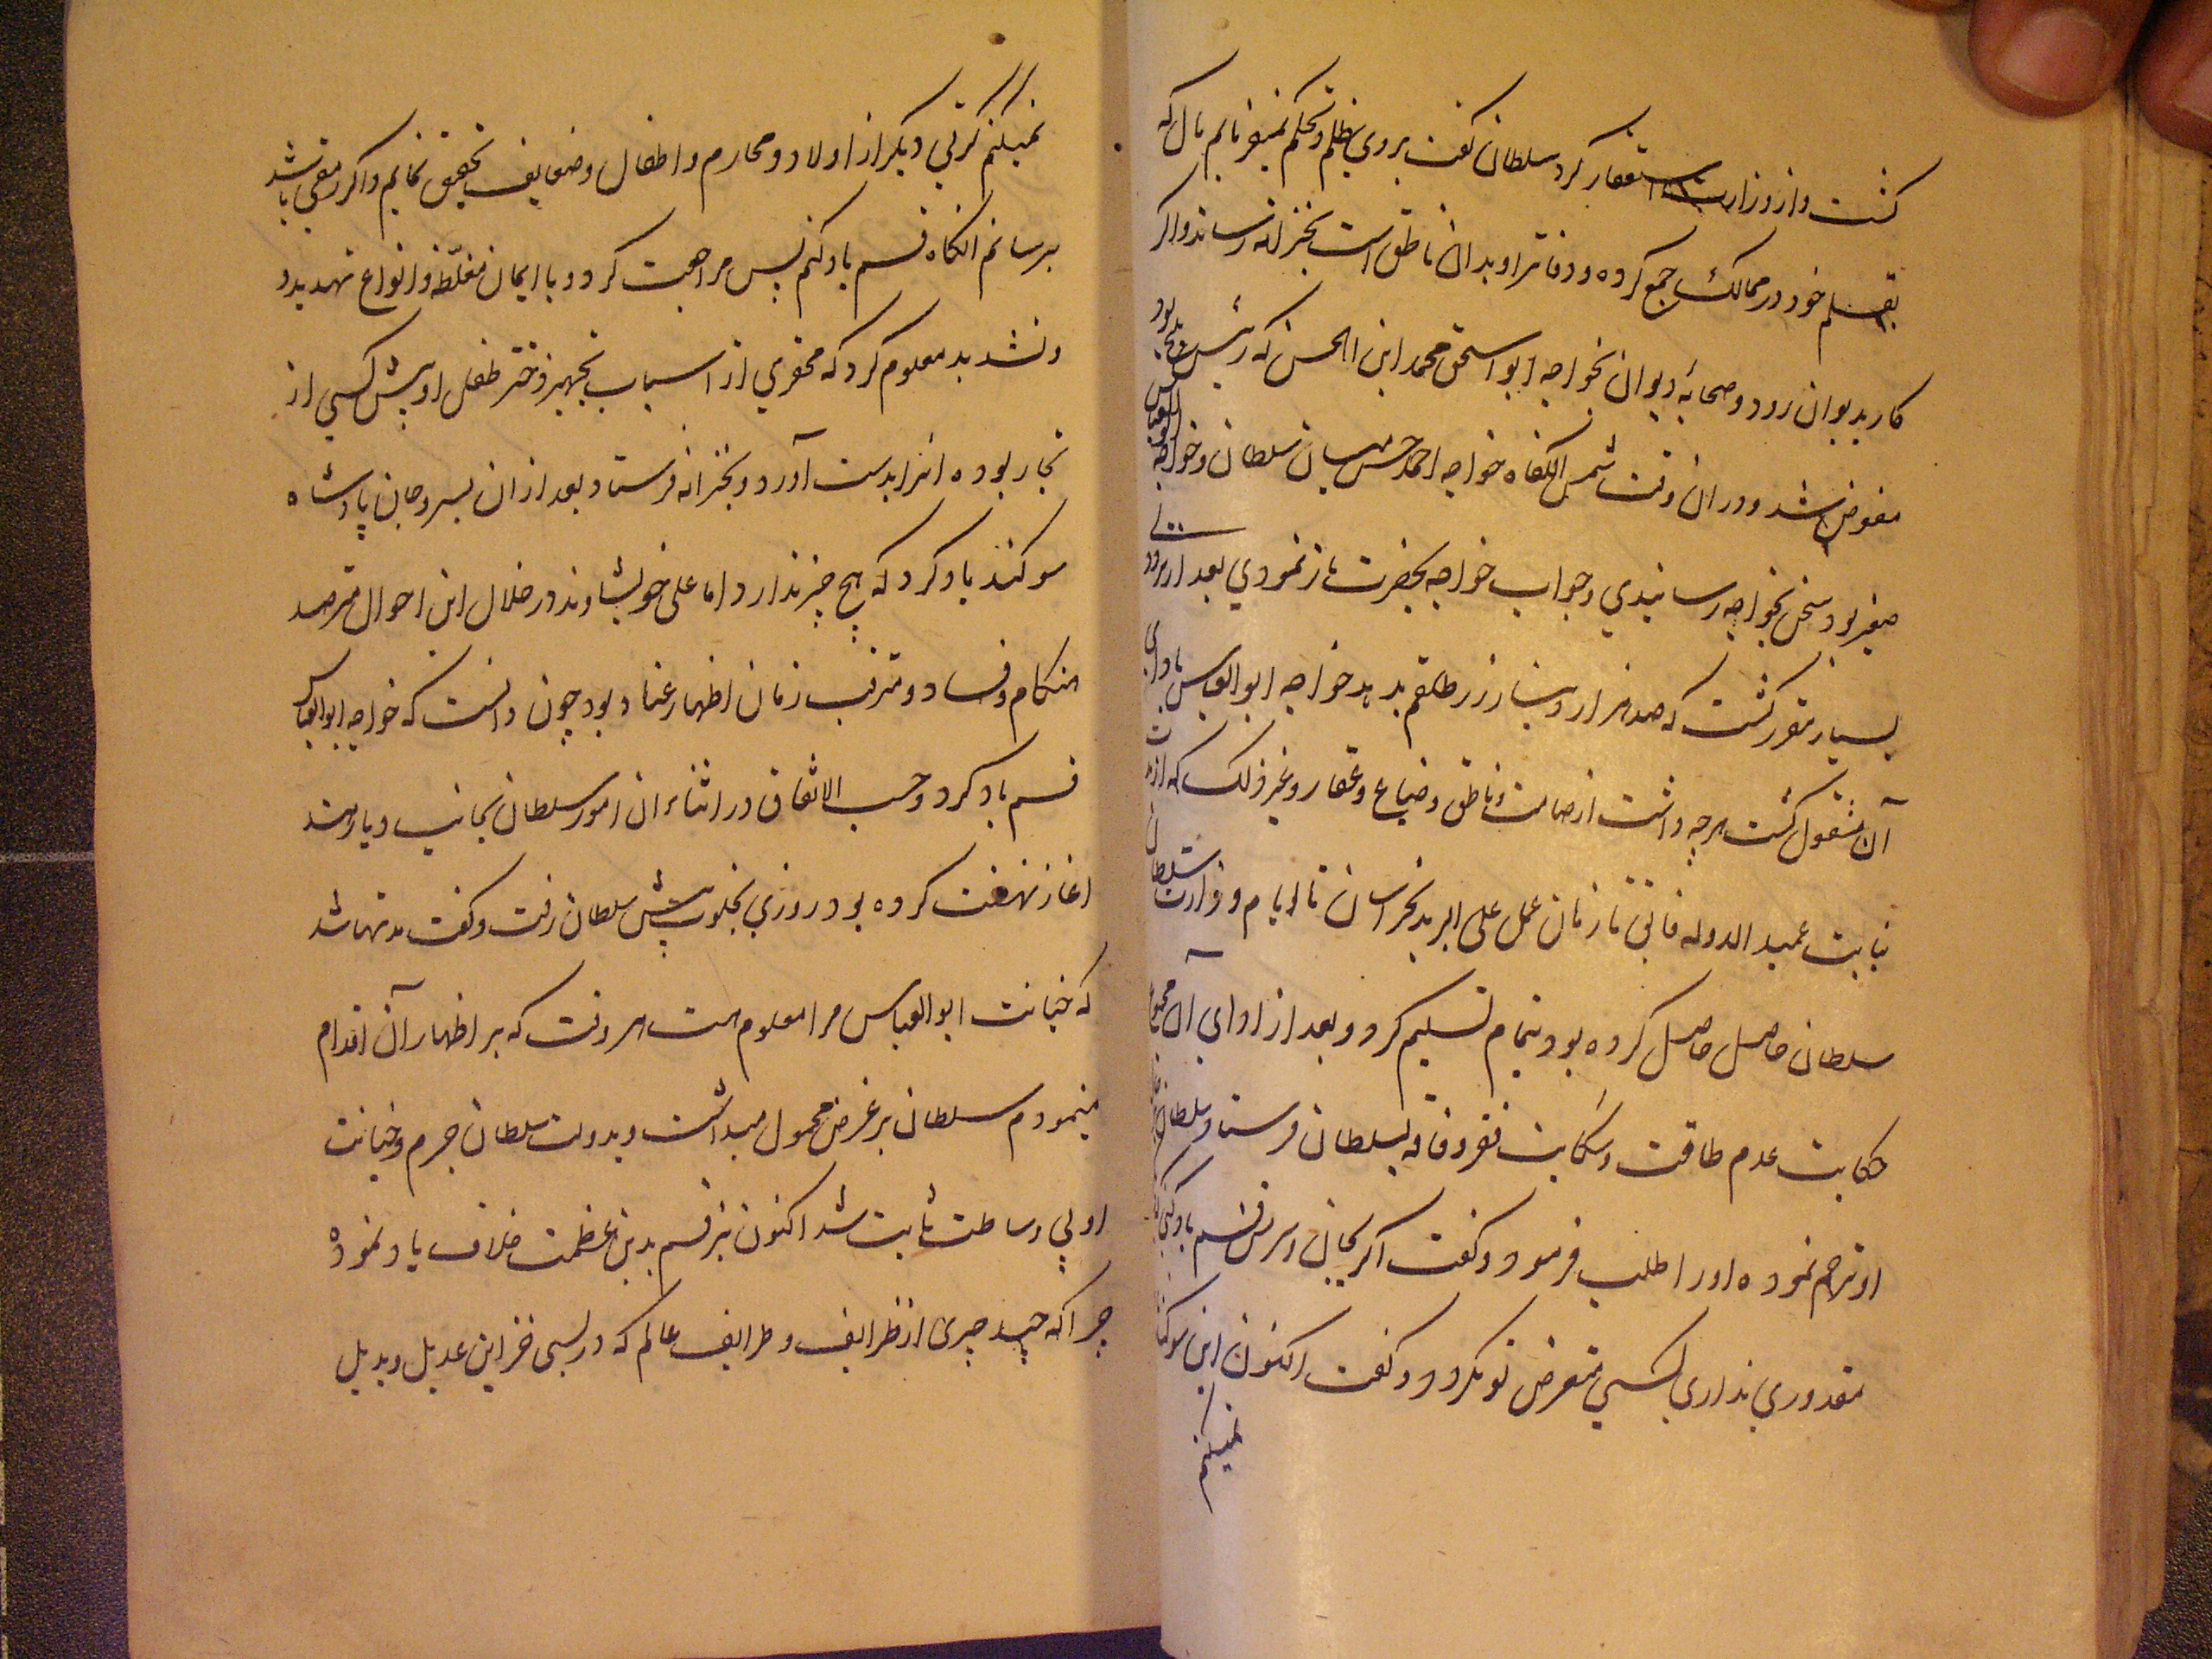 کشت و از وزارت استغفار کرد سلطان گفت بروی ظلم و تحکم نمیفرمایم مال که
بقلم خود در ممالک جمع کرده و دفاتر او بدان ناطق است بخزانه رساند و اگر
کار بدیوان رود و دیوان بخواجه ابو اسحق محمد ابن الحسن که رئیس بلخ بود
مفوض شد و در ان وقت شمس الکفاه خواجه احمد حسن میان سلطان و خواجه ابو العباس
سفیر بود سخن بخواجه رسانیدی و جواب خواجه بحضرت باز نمودی بعد از
بسیار مقرر کشت که صد هزار دینار زر طلقم بدهد خواجه ابو العباس بادای
آن مشغول کشت هرچه داشت از صامت و ناطق و ضیاع و عقار و غیر ذلک که از
نیابت عمید الدوله فائق تا زمان عمل علی البرید بخراسان تا ایام وزارت سلطان
سلطان حاصل کرده بود بتمام تسلیم کرد و بعد از ادای آن مجموع
حکایت عدم طاقت و شکایت فقر و فاقه بسلطان فرستاد سلطان
او ترحم نموده او را طلب فرمود و گفت اگر بجان و سر من قسم یاد کنی که
مقدوری نداری کسی متعرض تو نکردد و گفت اکنون این سوکند
نمیکنم
نمیکنم تا دیگر از اولاد و محارم و اطفال و ضعایف تحقیق نمایم و اگر مقری باشد
برسانم انکاه قسم یاد کنم پس مراجعت کرد و با ایمان مغلظه و انواع تهدید
و تشدید معلوم کرد که محقری از اسباب تجهیز دختر طفل او پیش کسی از
تجار بوده انرا بدست آورد و بخزانه فرستاد بعد از ان بسر و جان پادشاه
سوکند یاد کرد که هیچ چیز ندارد اما علی خویشاوند در خلال این احوال مترصد
هنکام و فساد و مترقب زمان اظهار عناد بود چون دانست که خواجه ابو العباس
قسم یاد کرد و حسب الاتفاق در اثناء ان امور سلطان بجانب دیار هند
اغاز نهضت کرده بود روزی بخلوت پیش سلطان رفت و گفت مدتها شد
که خیانت ابو العباس مرا معلوم است هر وقت که بر اظهار آن اقدام
مینمودم سلطان بر غرض محمول میداشت و بدولت سلطان جرم و خیانت
او بی وساطت ثابت شد اکنون نیز قسم بدین عظمت خلاف یاد نموده
چرا که چند چیزی از ظرایف و طرایف عالم که در بسی خزاین عدیل و بدیل